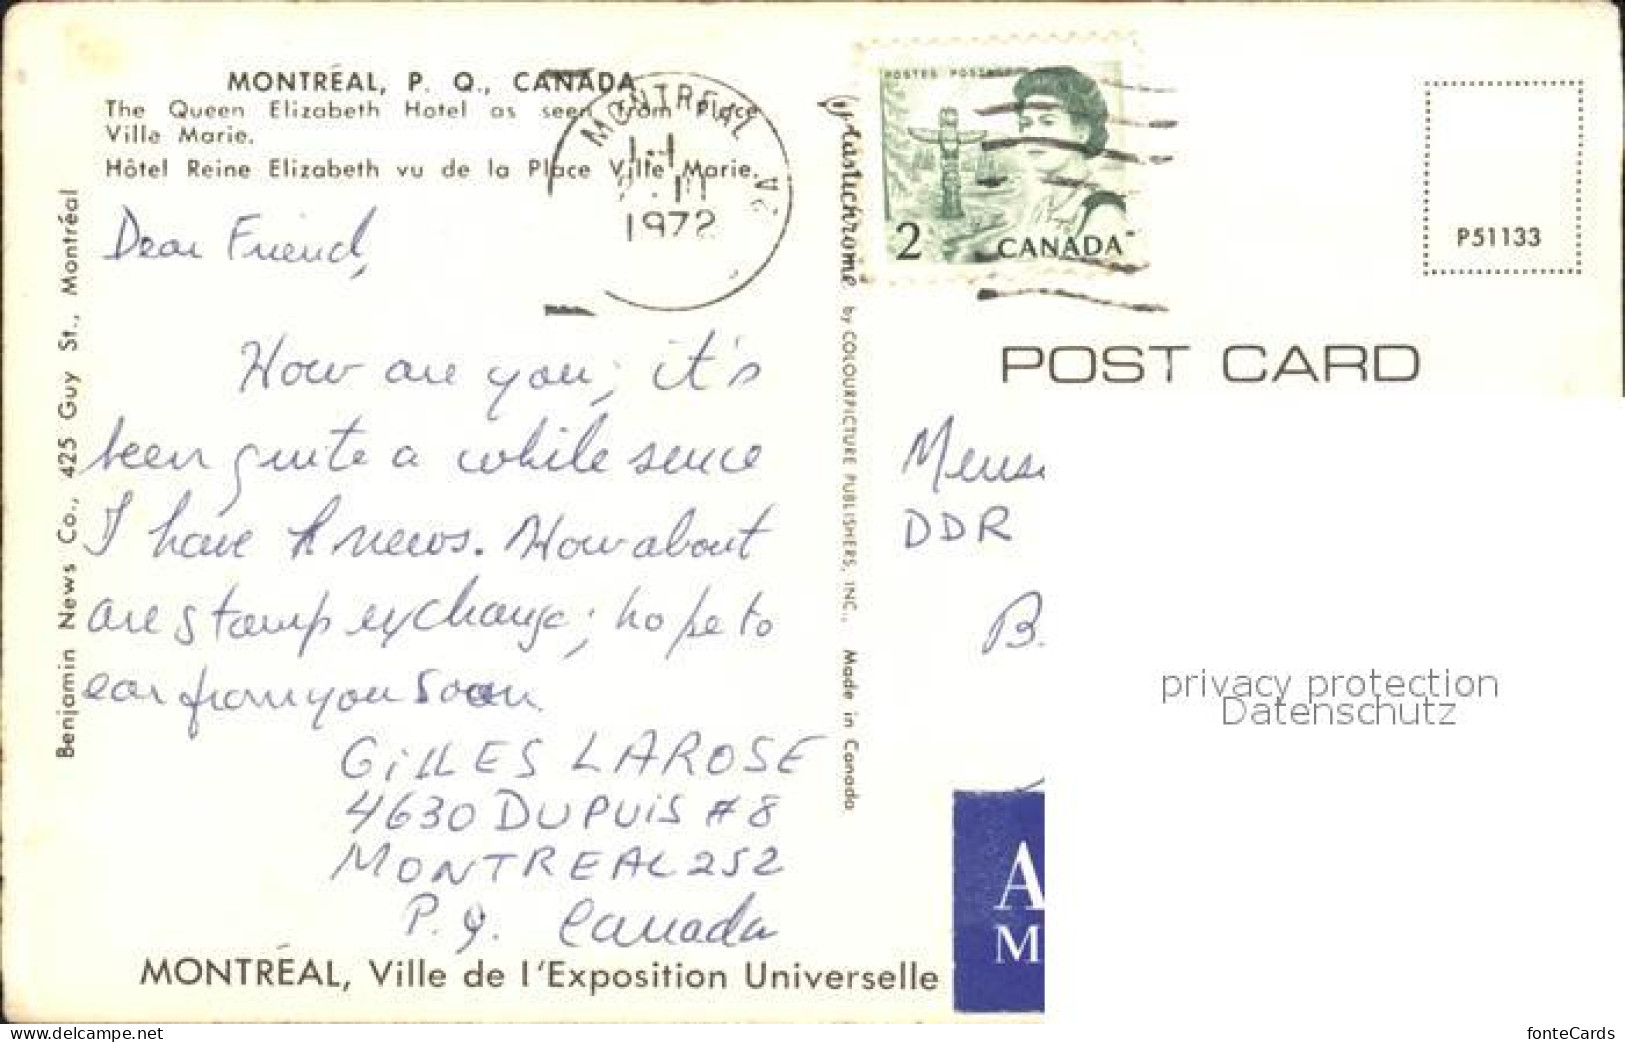 MONTRÉAL, P. Q., CANADA
The Queen Elizabeth Hotel as seen from Place
Ville Marie.
Hôtel Reine Elizabeth vu de la Place Ville Marie.
MONTREAL
1972
POSTES POSTAGE
2 CANADA
P51133
Benjamin News Co., 425 Guy St., Montréal
Dear Friend,
How are you; it's
been quite a while sence
I have news. How about
are stamp exchange; hope to
ear from you soon
GILLES LAROSE
4630 DUPUIS #8
MONTREAL 252
P.Q. Canada
MONTRÉAL, Ville de l'Exposition Universelle
Plastichrome by COLOURPICTURE PUBLISHERS, INC., Made in Canada.
POST CARD
DDR
B.
A
M
privacy protection
Datenschutz
www.delcampe.net
fonteCards